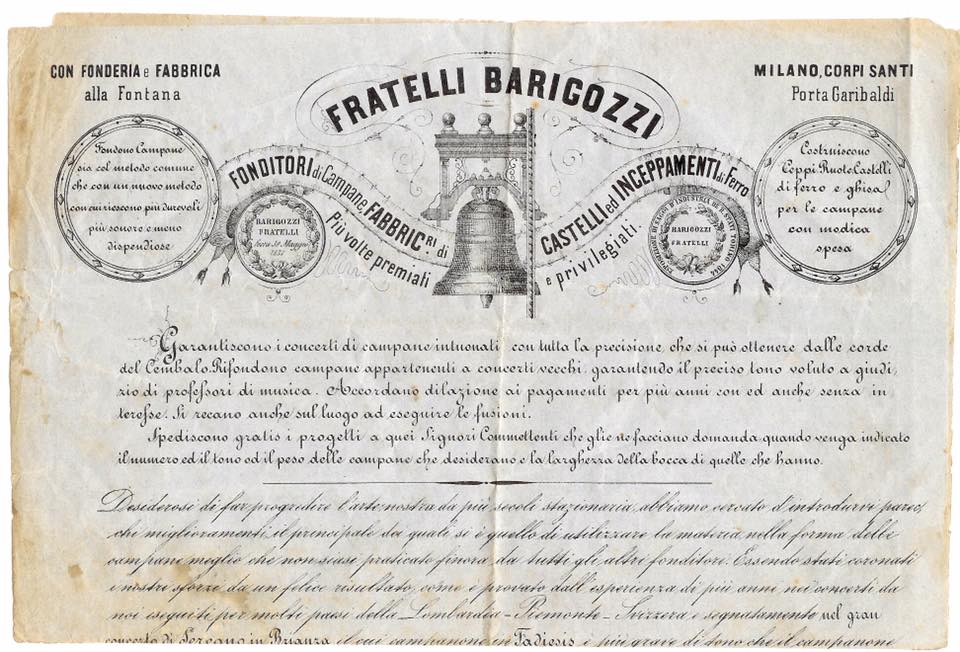 FRATELLI BARIGOZZI
CON FONDERIA e FABBRICA
alla Fontana
MILANO, CORPI SANTI
Porta Garibaldi
Fondono Campane
sia col metodo comune
che con un nuovo metodo
con cui riescono più durevoli
più sonore e meno
dispendiose
FONDITORI di Campane, FABBRIC.RI di
CASTELLI ed INCEPPAMENTI di Ferro
Più volte premiati
e privilegiati.
BARIGOZZI
FRATELLI
BARIGOZZI
FRATELLI
Costruiscono
Ceppi Ruote Castelli
di ferro e ghisa
per le campane
con modica
spesa
Garantiscono i concerti di campane intuonati con tutta la precisione, che si può ottenere dalle corde
del Cembalo. Rifondono campane appartenenti a concerti vecchi, garantendo il preciso tono voluto a giudi,
zio di professori di musica. Accordano dilazione ai pagamenti per più anni con ed anche senza in
teresse. Si recano anche sul luogo ad eseguire le fusioni.
Spediscono gratis i progetti a quei Signori Committenti che glie ne facciano domanda, quando venga indicato
il numero, ed il tono od il peso delle campane che desiderano e la larghezza della bocca di quelle che hanno.
Desiderosi di far progredire l'arte nostra da più secoli stazionaria, abbiamo cercato d'introdurvi parec,
chi miglioramenti, il principale dei quali si è quello di utilizzare la materia nella forma delle
campane meglio che non siasi praticato finora da tutti gli altri fonditori. Essendo stati coronati
i nostri sforzi da un felice risultato, come è provato dall'esperienza di più anni nei concerti da
noi eseguiti per molti paesi della Lombardia - Piemonte - Svizzera e segnatamente nel gran
concerto di in Brianza il cui campanone in è più grave di tono che il campanone